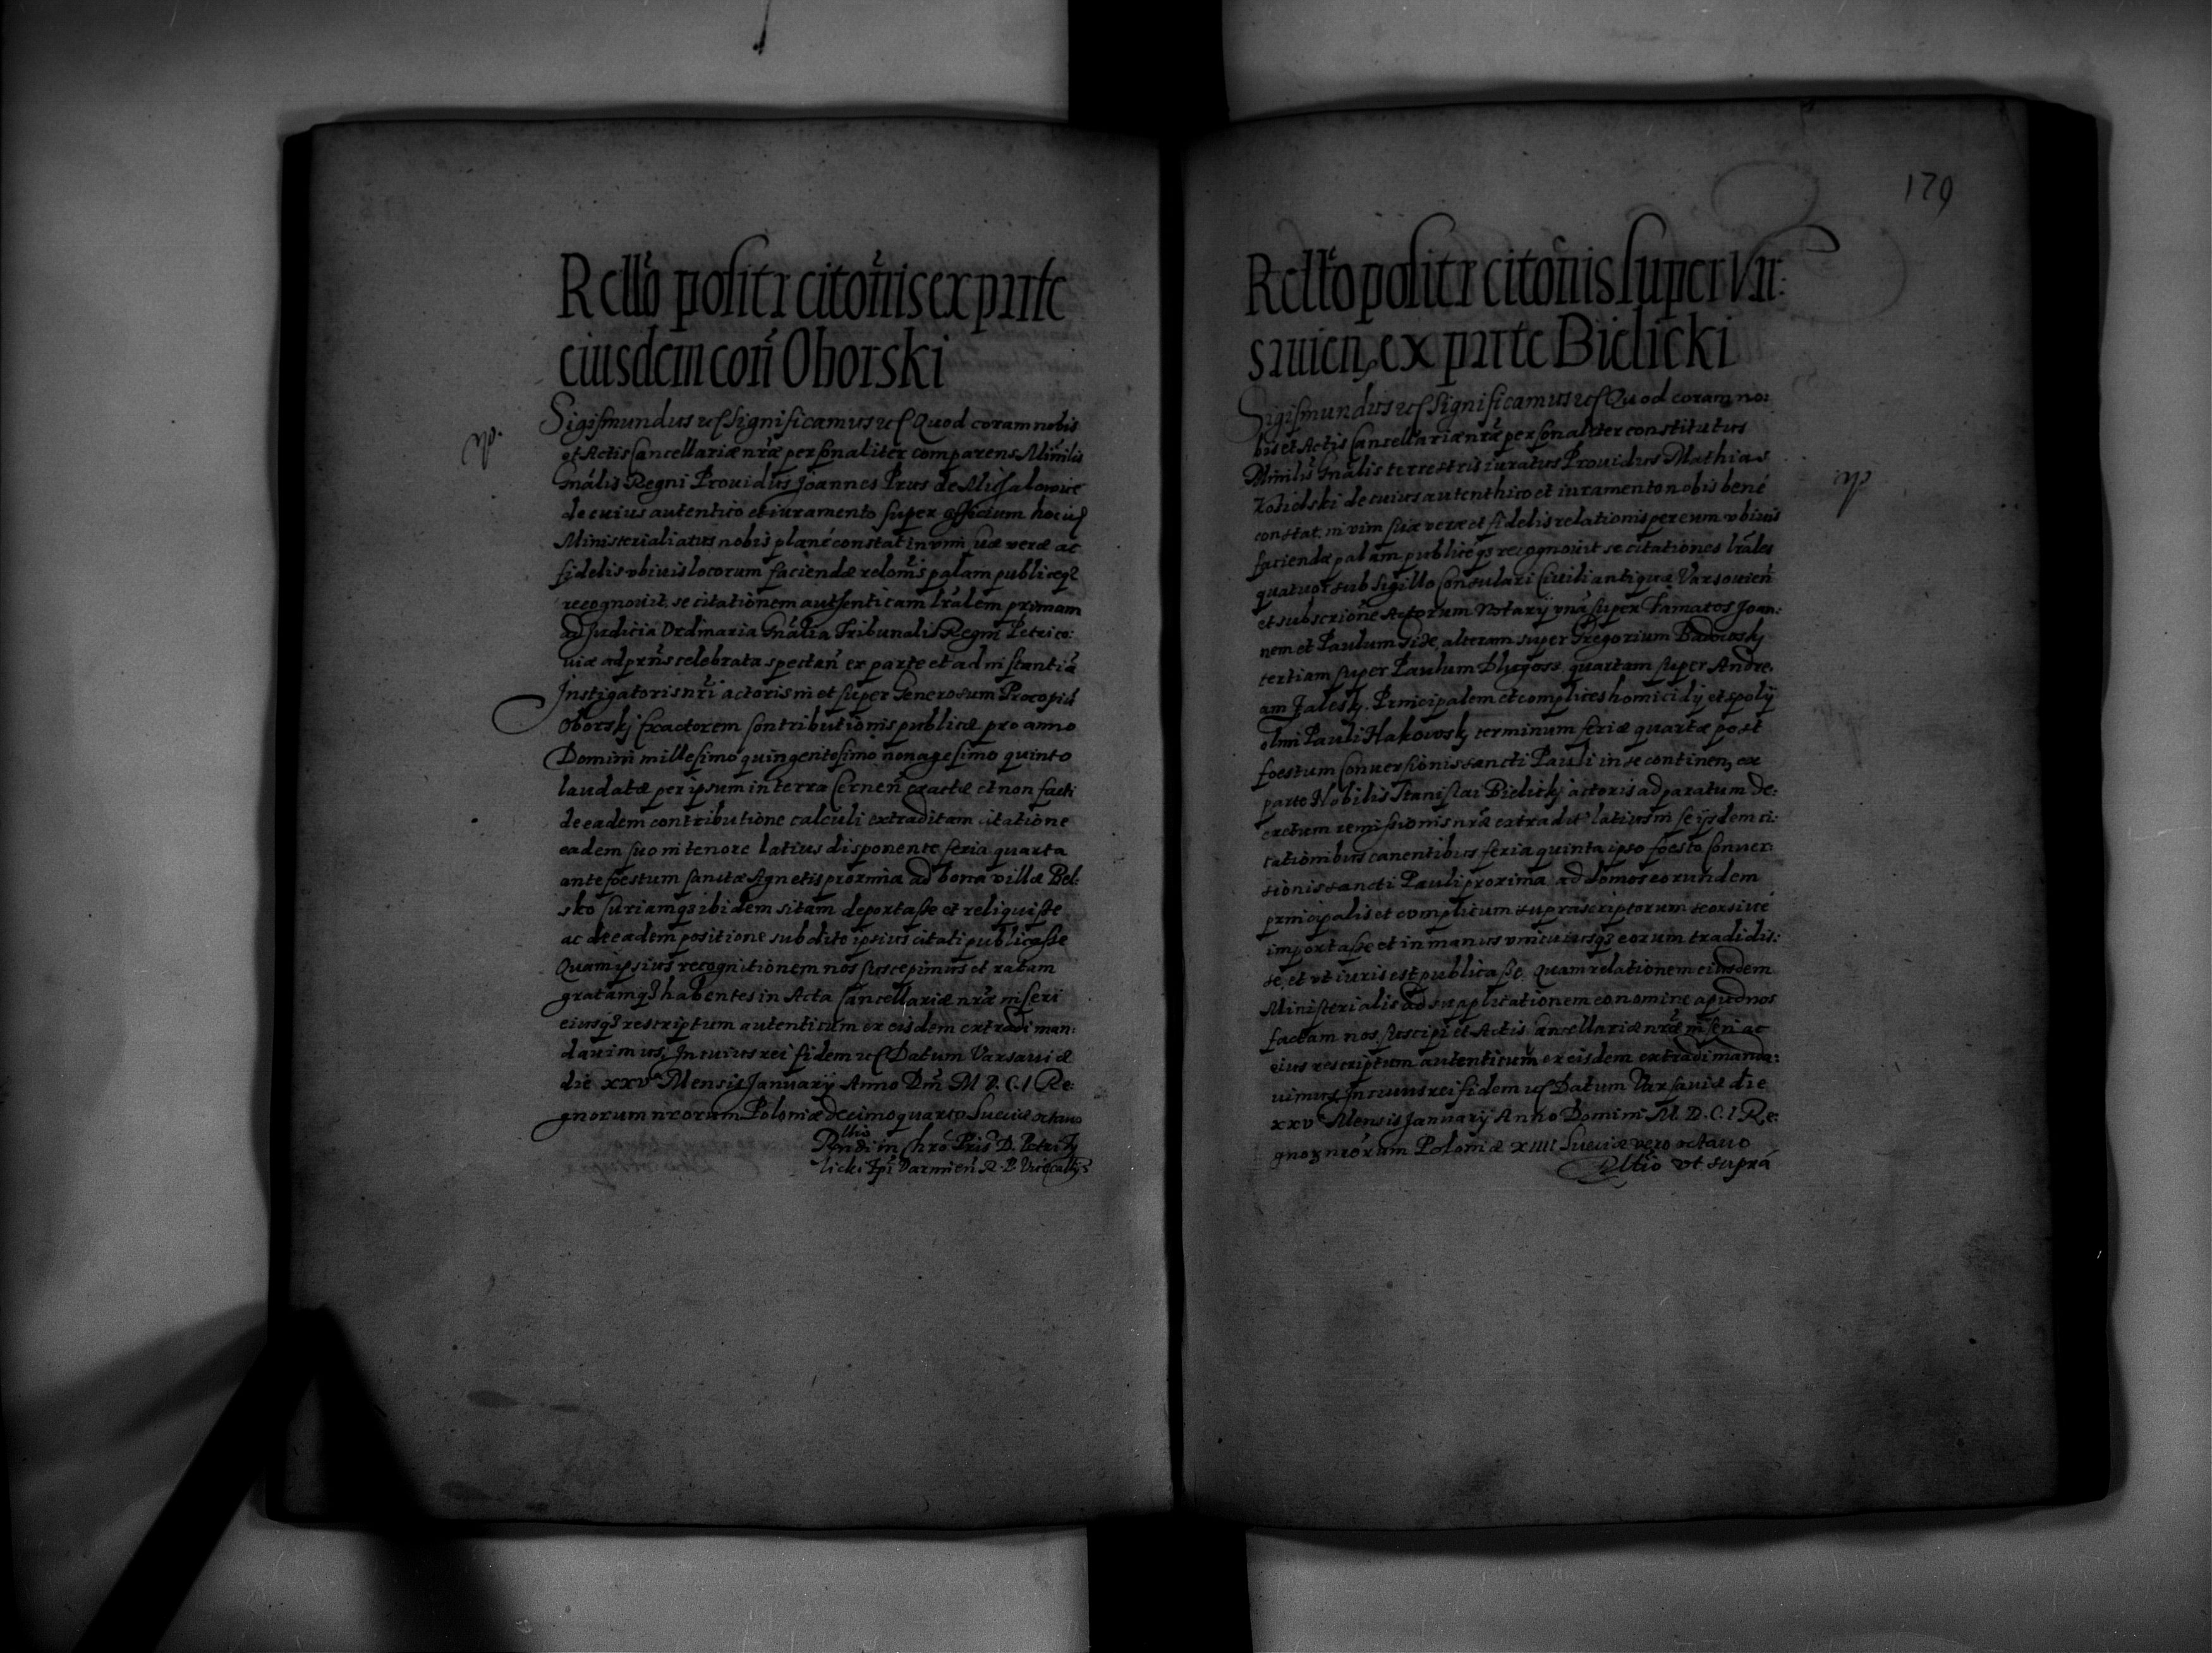 Rello posita citonis ex parte
eiusdem con Oborski
Sigismundus etc Significamus etc Quod coram nobis
et Actis Cancellariæ nræ personaliter comparens Minilis
Gnalis Regni Prouidus Joannes Prus de Michalowice
de cuius autentico et iuramento super officium
Ministerialiatus nobis planè constat in vim suæ veræ ac
fidelis vbiuis locorum faciendæ relonis palam publiceq3
recognouit, se citationem authenticam lralem primam
ad Judicia Ordinaria Gnalia Tribunalis Regni Petrico:
uiæ ad prns celebrata spectan ex parte et ad instantiã
Instigatoris nri actoris in et super Generosum Procopiũ
Oborskj Exactorem Contributionis publicæ pro anno
Domini millesimo quingentesimo nonagesimo quinto
laudatæ per ipsum in terra Cernen exactæ et non facti
de eadem contributione calculi extraditam citatione
eadem suo in tenore latius disponente feria quarta
ante foestum sanctæ Agnetis proxima ad bona villæ Bel:
sko Curiamq3 ibidem sitam deportasse et reliquisse
ac de eadem positione subdito ipsius citati publicasse
Quam ipsius recognitionem nos suscepimus et ratam
gratamq3 habentes in Acta Cancellariæ nræ inseri
eiusq3 rescriptum autenticum ex eisdem extradi man:
dauimus, In cuius rei fidem etc Datum Varsauiæ
die xxvª Mensis Januarij Anno Dni M D. C. I. Re:
gnorum nrorum Poloniæ decimoquarto Sueciæ octauo
Rltio
Rndi in Chro Pris D. Petri Ty
licki Epi Varmien R. P. Vicecallrij
179
Rello posita citonis super Var:
sauien, ex parte Bielicki
Sigismundus etc Significamus etc Quod coram no:
bis et Actis Cancellariæ nræ personaliter constitutus
Minilis Gnalis terrestris iuratus Prouidus Mathias
de cuius autenthico et iuramento nobis benè
constat, in vim suæ veræ et fidelis relationis per eum vbiuis
faciendæ palam publicèq3 recognouit se citationes lrales
quatuor sub Sigillo Consulari Ciuili antiquæ Varsouien
et subscrione Actorum Notarij vnã super Famatos Joan:
nem et Paulum Gize, alteram super Gregorium Badowskj
tertiam super Paulum Dlugosz, quartam super Andre:
am Zaleskj. Principalem et complices homicidij et spolij
olim Pauli Hakowskj terminum feriæ quartæ post
foestum Conuersionis sancti Pauli in se continen, ex
parte Nobilis Stanislai Bielickj actoris ad paratum de:
cretum remissionis nræ extradit latius in se ijsdem ci:
tationibus canentibus feria quinta ipso foesto Conuer:
sionis sancti Pauli proxima ad domos eorundem
principalis et complicum suprascriptorum seorsiuè
importasse et in manus vniuiusq3 eorum tradidis:
se, et vt iuris est publicasse. Quam relationem eiusdem
Ministerialis ad suaplicationem eo nomine apud nos
factam nos suscipi et Actis Cancellariæ nræ inseri ac
eius rescriptum autenticum ex eisdem extradi manda:
uimus, In cuius rei fidem etc Datum Varsauiæ die
xxvª Mensis Januarij Anno Domini M. D. C. I. Re:
gnor nrorum Poloniæ xiiii Sueciæ vero octauo
Rltio vt suprà